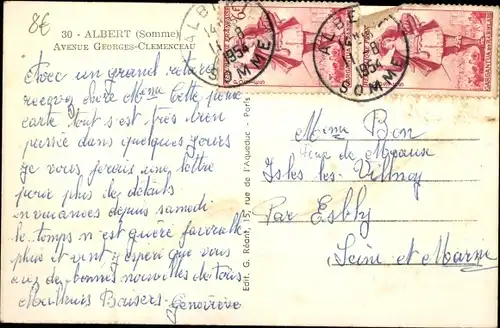 8€
30 - ALBERT (Somme)
AVENUE GEORGES-CLEMENCEAU
ALBERT
11 - 8
1954
SOMME
ALBERT
- 8
1954
SOMME
6F
Avec un grand retard
recevez chère Mme cette petite
carte tout s'est très bien
passée dans quelques jours
je vous ferais une lettre
pour plus de détails
vacances depuis samedi
le temps n'est guère favorable
pluie et vent j'espère que vous
avez de bonnes nouvelles de tous
Meilleurs Baisers Geneviève
Edit. G. Réant, 15, rue de l'Aqueduc - Paris
Mme Bon
rue de Meaux
Isles les Villenoy
Par Esbly
Seine et Marne